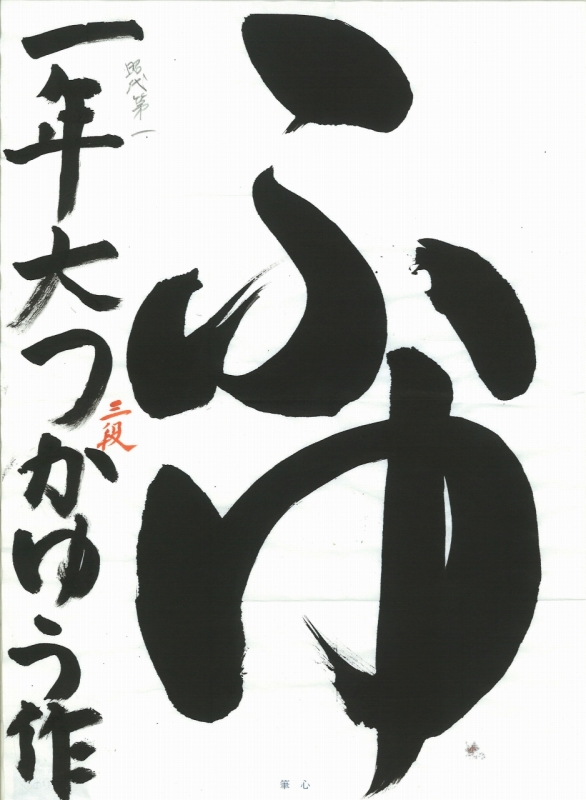 ふゆ
昭代第一
一年大つかゆう作
三段
筆心